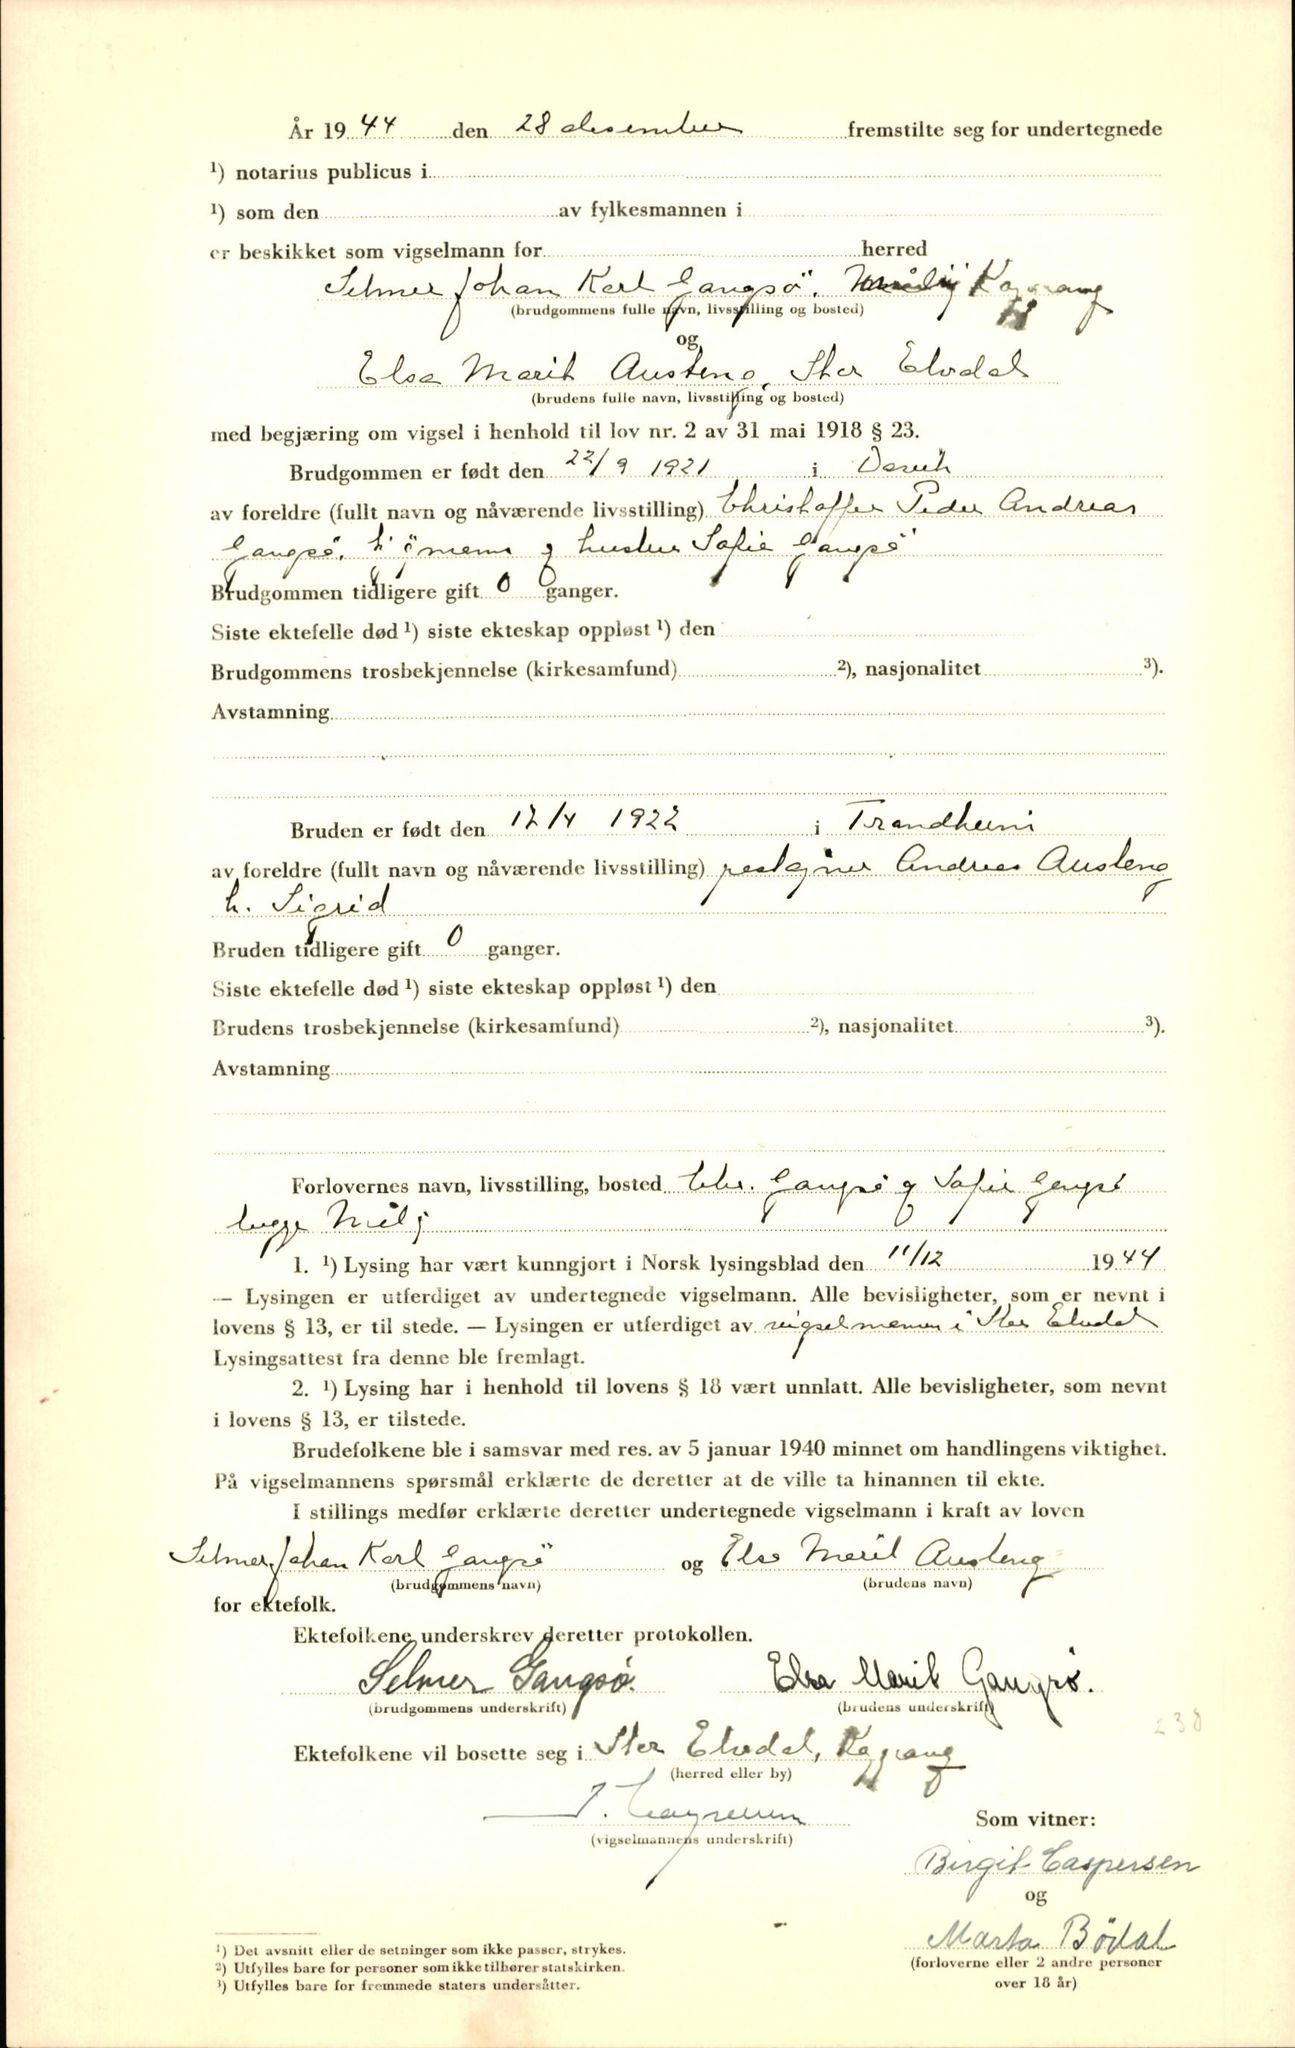 År 1944 den 28 desember fremstilte seg for undertegnede
¹) notarius publicus i
¹) som den av fylkesmannen i
er beskikket som vigselmann for herred
Selmer Johan Karl Gangsö,
(brudgommens fulle navn, livsstilling og bosted)
og
Elsa Marit Austeng, Stor Elvdal
(brudens fulle navn, livsstilling og bosted)
med begjæring om vigsel i henhold til lov nr. 2 av 31 mai 1918 § 23.
Brudgommen er født den 22/9 1921 i
av foreldre (fullt navn og nåværende livsstilling) Christoffer Peder Andreas
Gangsö, og hustru Sofie Gangsö
Brudgommen tidligere gift 0 ganger.
Siste ektefelle død ¹) siste ekteskap oppløst ¹) den
Brudgommens trosbekjennelse (kirkesamfund) ²), nasjonalitet ³).
Avstamning
Bruden er født den 12/4 1922 i Trondheim
av foreldre (fullt navn og nåværende livsstilling) Andreas Austeng
h. Sigrid
Bruden tidligere gift 0 ganger.
Siste ektefelle død ¹) siste ekteskap oppløst ¹) den
Brudens trosbekjennelse (kirkesamfund) ²), nasjonalitet ³).
Avstamning
Forlovernes navn, livsstilling, bosted Chr. Gangsö og Sofie Gangsö
begge
1. ¹) Lysing har vært kunngjort i Norsk lysingsblad den 11/12 1944
— Lysingen er utferdiget av undertegnede vigselmann. Alle bevisligheter, som er nevnt i
lovens § 13, er til stede. — Lysingen er utferdiget av vigselmannen i Stor Elvdal
Lysingsattest fra denne ble fremlagt.
2. ¹) Lysing har i henhold til lovens § 18 vært unnlatt. Alle bevisligheter, som nevnt
i lovens § 13, er tilstede.
Brudefolkene ble i samsvar med res. av 5 januar 1940 minnet om handlingens viktighet.
På vigselmannens spørsmål erklærte de deretter at de ville ta hinannen til ekte.
I stillings medfør erklærte deretter undertegnede vigselmann i kraft av loven
Selmer Johan Karl Gangsö og Elsa Marit Austeng
(brudgommens navn) (brudens navn)
for ektefolk.
Ektefolkene underskrev deretter protokollen.
Selmer Gangsö. Elsa Marit Gangsö.
(brudgommens underskrift) (brudens underskrift)
238
Ektefolkene vil bosette seg i Stor Elvdal,
(herred eller by)
(vigselmannens underskrift)
Som vitner:
Birgit Caspersen
og
Marta Bödal
(forloverne eller 2 andre personer
over 18 år)
¹) Det avsnitt eller de setninger som ikke passer, strykes.
²) Utfylles bare for personer som ikke tilhører statskirken.
³) Utfylles bare for fremmede staters undersåtter.